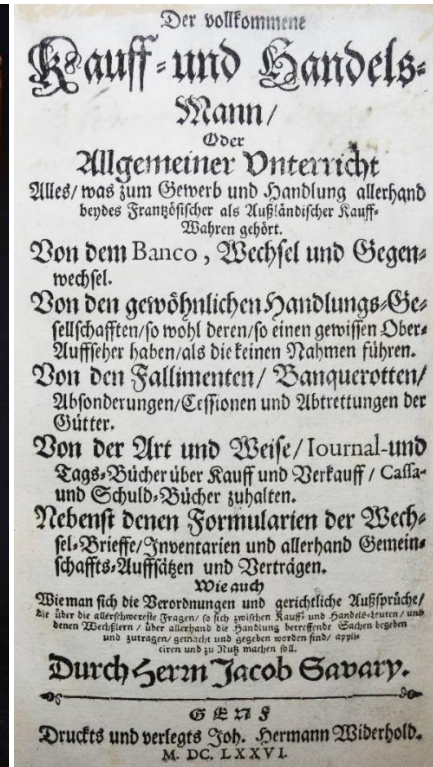 Der vollkommene
Kauff-und Handels-
Mann/
Oder
Allgemeiner Vnterricht
Alles/ was zum Gewerb und Handlung allerhand
beydes Frantzösischer als Außländischer Kauff-
Wahren gehört.
Von dem Banco, Wechsel und Gegen-
wechsel.
Von den gewöhnlichen Handlungs-Ge-
sellschafften/so wohl deren/so einen gewissen Ober-
Auffseher haben/als die keinen Nahmen führen.
Von den Fallimenten/ Banquerotten/
Absonderungen/Cessionen und Abtrettungen der
Gütter.
Von der Art und Weise/ Iournal-und
Tags-Bücher über Kauff und Verkauff / Cassa-
und Schuld-Bücher zuhalten.
Nebenst denen Formularien der Wech-
sel-Brieffe/Inventarien und allerhand Gemein-
schaffts-Auffsätzen und Verträgen.
Wie auch
Wie man sich die Verordnungen und gerichtliche Außsprüche/
die über die allerschwereste Fragen/ so sich zwischen Kauff- und Handels-Leuten/ und
denen Wechßlern / über allerhand die Handlung betreffende Sachen begeben
und zutragen/ gemacht und gegeben worden sind/ appli-
ciren und zu Nutz machen soll.
Durch Herrn Jacob Savary.
GENF
Druckts und verlegts Joh. Hermann Widerhold.
M. DC. LXXVI.